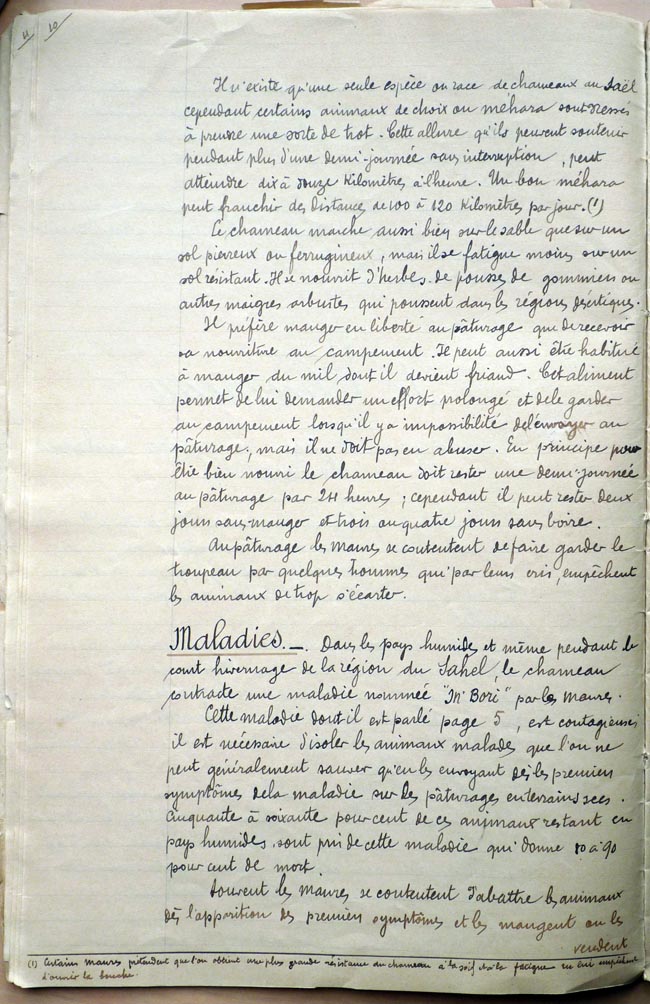 11 20
Il n'existe qu'une seule espèce ou race de chameaux au Saël
cependant certains animaux de choix ou méhara sont dressés
à prendre une sorte de trot. Cette allure qu'ils peuvent soutenir
pendant plus d'une demi-journée sans interruption, peut
atteindre dix à douze Kilomètres à l'heure. Un bon méhara
peut franchir des distances de 100 à 120 Kilomètres par jour. (1)
Le chameau marche aussi bien sur le sable que sur un
sol pierreux ou ferrugineux, mais il se fatigue moins sur un
sol résistant. Il se nourrit d'herbes, de pousses de gommiers ou
autres maigres arbustes qui poussent dans les régions désertiques.
Il préfère manger en liberté au pâturage que de recevoir
sa nourriture au campement. Il peut aussi être habitué
à manger du mil, dont il devient friand. Cet aliment
permet de lui demander un effort prolongé et de le garder
au campement lorsqu'il y a impossibilité de l'envoyer au
pâturage; mais il ne doit pas en abuser. En principe pour
être bien nourri le chameau doit rester une demi-journée
au pâturage par 24 heures; cependant il peut rester deux
jours sans manger et trois ou quatre jours sans boire.
Au pâturage les Maures se contentent de faire garder le
troupeau par quelques hommes qui par leurs cris, empêchent
les animaux de trop s'écarter.
Maladies. — . Dans les pays humides et même pendant le
court hivernage de la région du Sahel, le chameau
contracte une maladie nommée "M'Bori" par les Maures.
Cette maladie dont il est parlé page 5, est contagieuse;
il est nécessaire d'isoler les animaux malades que l'on ne
peut généralement sauver qu'en les envoyant dès les premiers
symptômes de la maladie sur les pâturages en terrains secs.
Cinquante à soixante pour cent de ces animaux restant en
pays humides sont pris de cette maladie qui donne 80 à 90
pour cent de mort.
Souvent les Maures se contentent d'abattre les animaux
dès l'apparition des premiers symptômes et les mangent ou les
vendent
(1) Certains Maures prétendent que l'on obtient une plus grande résistance du chameau à la soif et à la fatigue en lui empêchant
d'ouvrir la bouche.